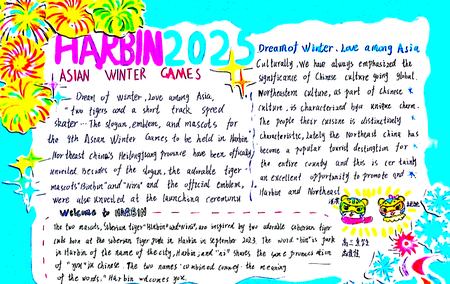 HARBIN 2025
ASIAN WINTER GAMES
Dream of winter, Love among Asia,
"two tigers and a short track speed
skater". The slogan, emblem, and mascots for
the 9th Asian Winter Games to be held in Harbin
Northeast China's Heilongjiang province have been officially
unveiled besides of the slogan, the adorable tiger
mascots "Binbin" and "Nini" and the official emblem,
were also unveiled at the launching ceremony
Dream of Winter, Love among Asia
Culturally, We have always emphasized the
significance of Chinese culture going global.
Northeastern culture, as part of Chinese
culture, is characterized by a unique charm.
The people their cuisine is distinctively
characteristic, lately the Northeast china has
become a popular tourist destination for
the entire county and this is certainly
an excellent opportunity to promote and
Harbin and Northeast
Welcome to HARBIN
The two mascots, Siberian tiger "Binbin" and "nini", are inspired by two adorable siberian tiger
cubs born at the siberian Tiger park in Harbin in september 2023. The word "bin" is park
in Harbin of the name of the city, Harbin, and "ni" shares the same pronunciation
of "you" in chinese. The two names combined convey the meaning
of the words. "Harbin welcomes you.